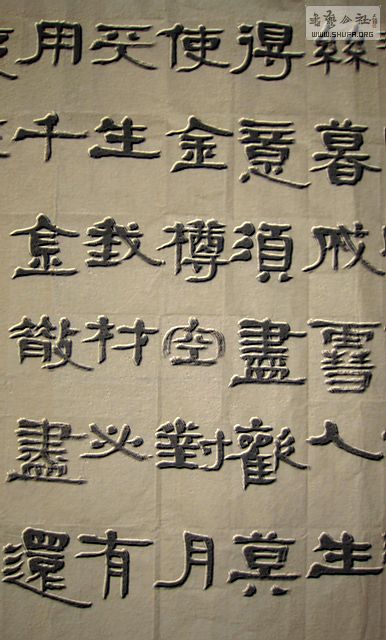 絲暮成雪人生
得意須盡歡莫
使金樽空對月
天生我材必有
用千金散盡還
WWW.SHUFA.ORG